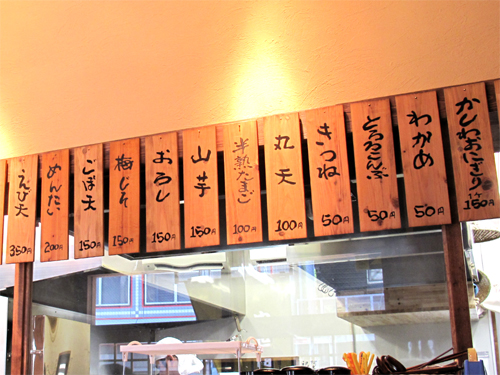 かしわおにぎり
1ケ
150円
わかめ
50円
とろろこんぶ
50円
きつね
50円
丸天
100円
半熟たまご
100円
山芋
150円
おろし
150円
梅しそ
150円
ごぼ天
150円
めんたい
200円
えび天
350円